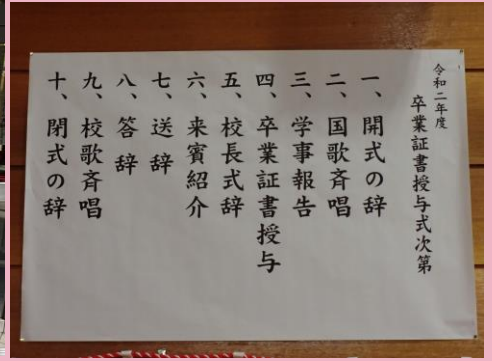 令和二年度
卒業証書授与式次第
一、開式の辞
二、国歌斉唱
三、学事報告
四、卒業証書授与
五、校長式辞
六、来賓紹介
七、送辞
八、答辞
九、校歌斉唱
十、閉式の辞